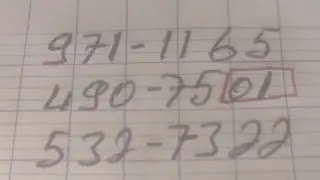 971-1165
490-7501
532-7322